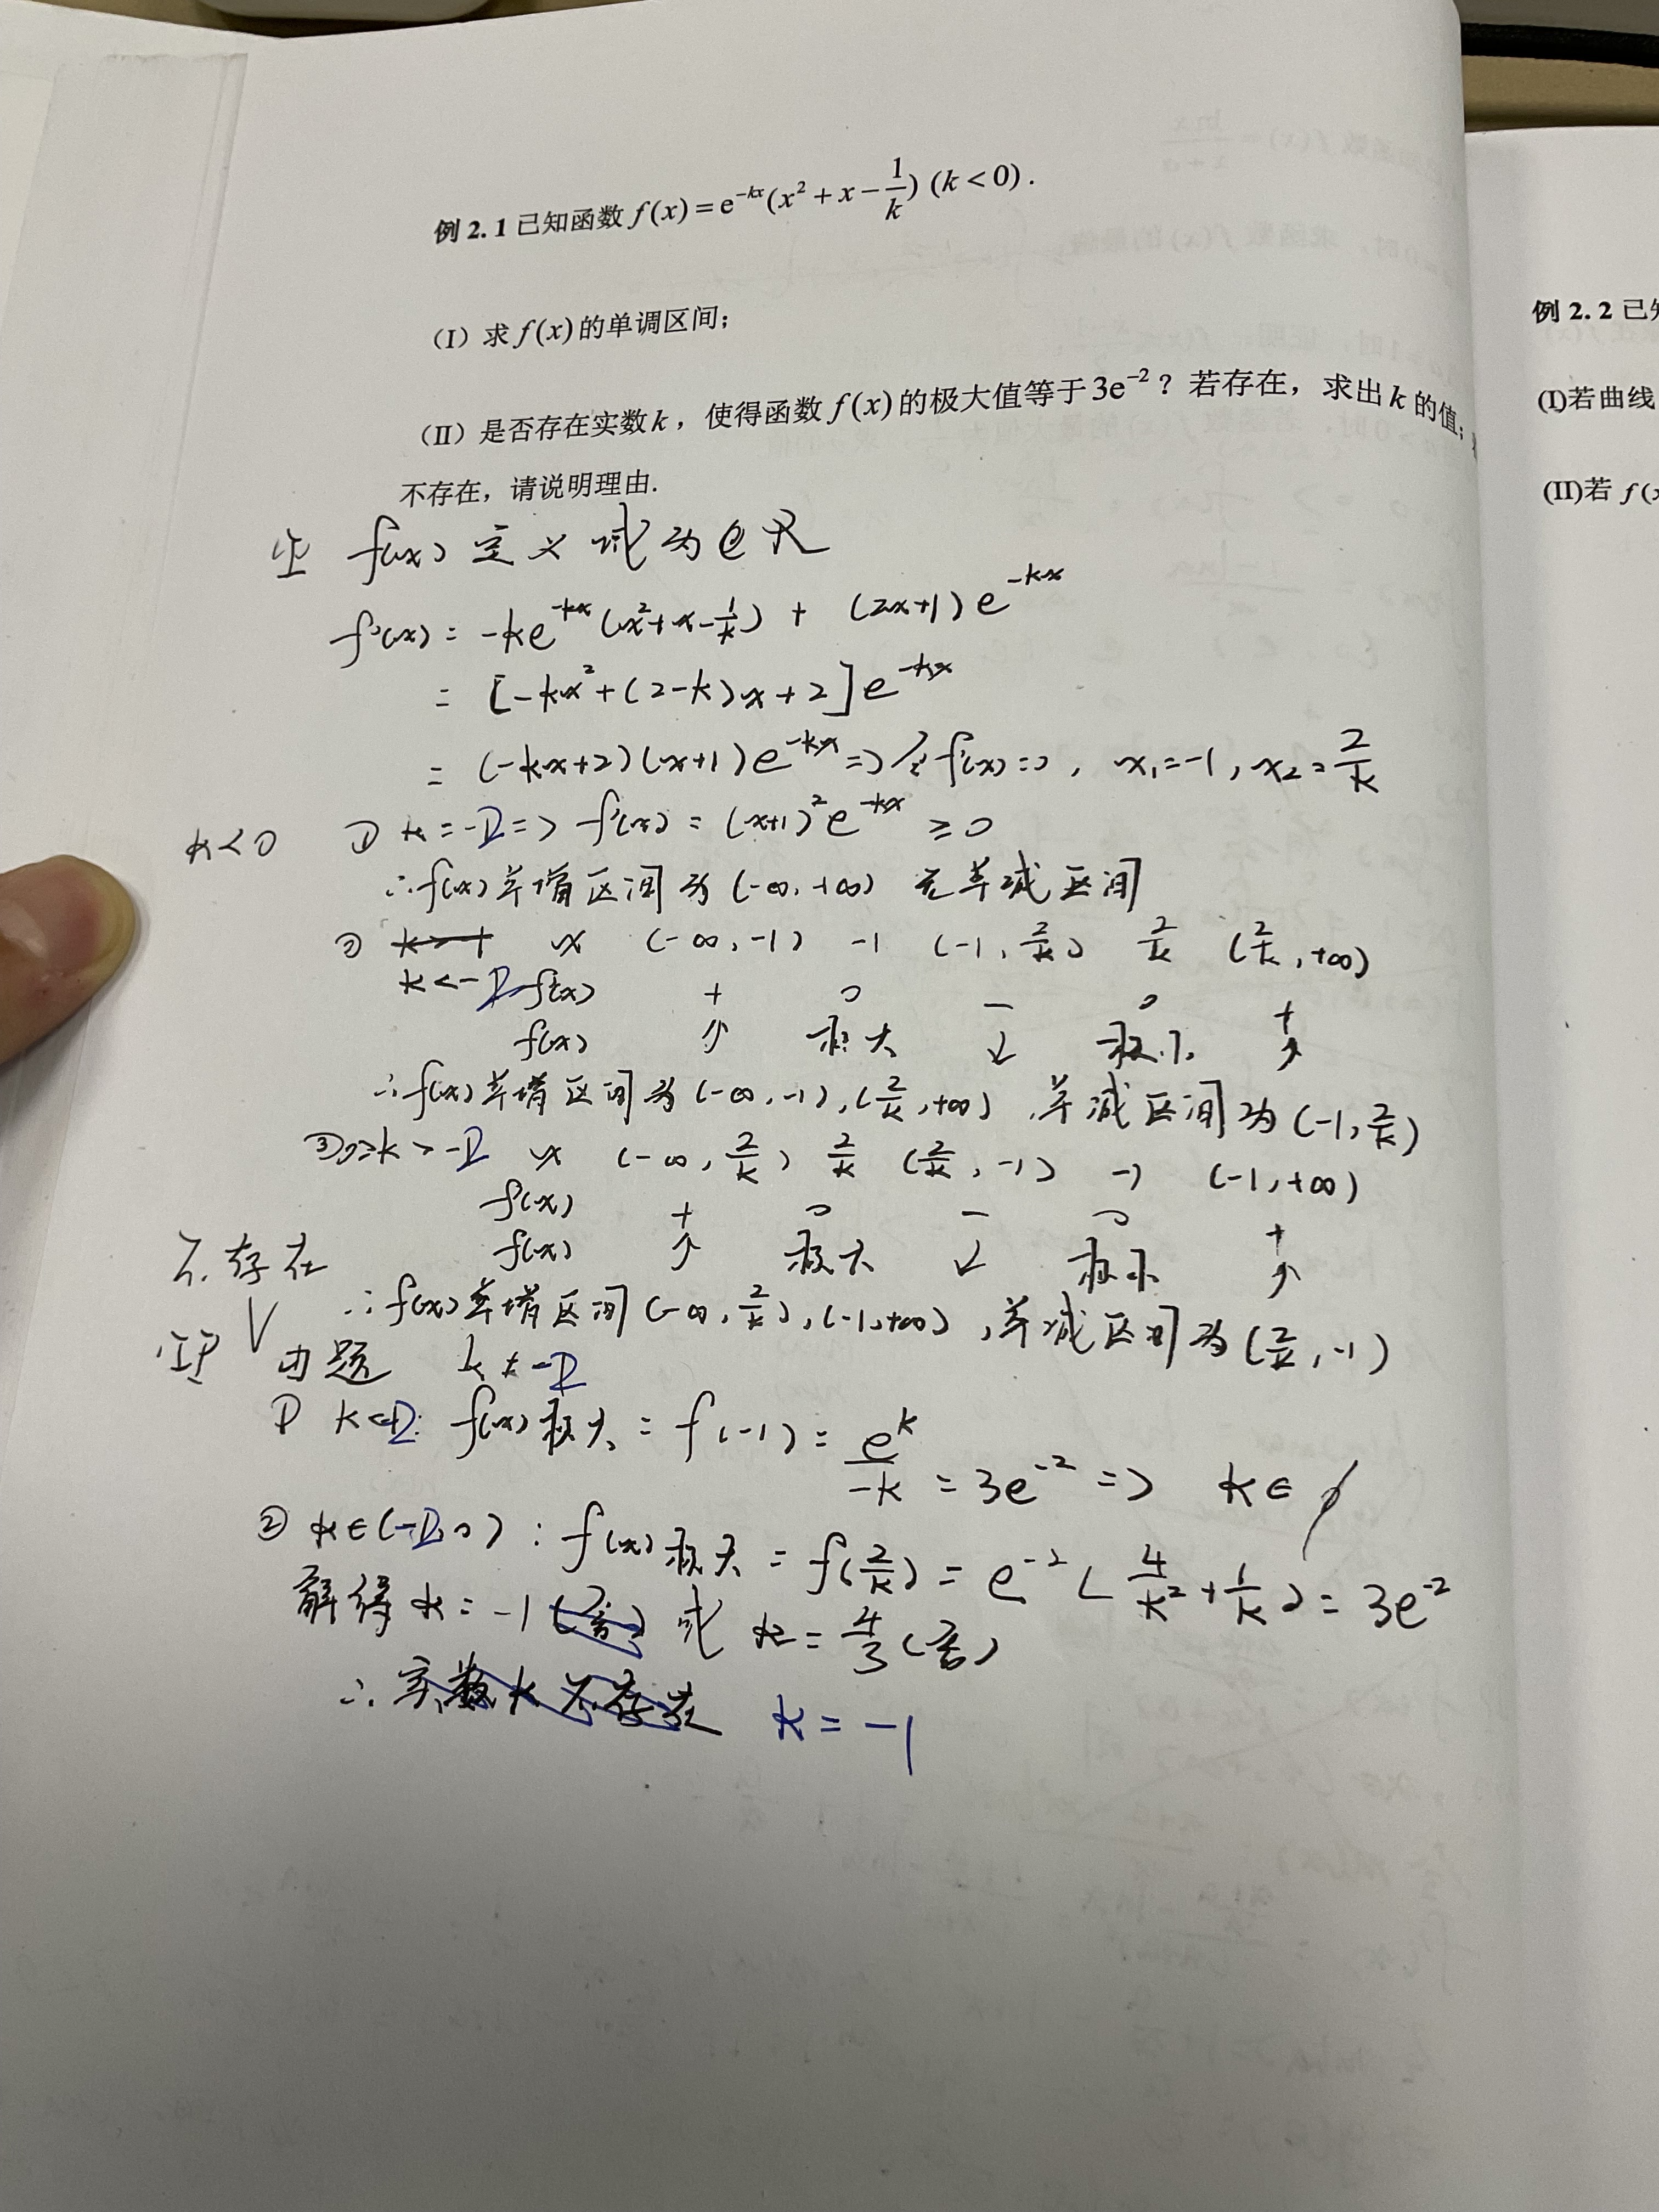 例 2.1 已知函数 f(x)=e^{-kx}(x²+x-1/k) (k<0).
例 2.2 已知
(I) 求 f(x) 的单调区间;
(I)若曲线
(II) 是否存在实数 k, 使得函数 f(x) 的极大值等于 3e^{-2}? 若存在, 求出 k 的值;
(II)若 f(x
不存在, 请说明理由.
f(x) 定义域为 R
f'(x) = -ke^{-kx}(x²+x-1/k) + (2x+1)e^{-kx}
= [-kx²+(2-k)x+2]e^{-kx}
= (-kx+2)(x+1)e^{-kx} => 令f'(x)=0, x₁=-1, x₂=2/k
k<0 ① k=-2 => f'(x) = (x+1)²e^{-kx} ≥0
∴f(x) 单增区间为 (-∞,+∞) 无单减区间
② x (-∞,-1) -1 (-1,2/k) 2/k (2/k,+∞)
k<-2 f'(x) + 0 - 0 +
f(x) ↑ 极大 ↓ 极小 ↑
∴f(x) 单增区间为 (-∞,-1),(2/k,+∞), 单减区间为 (-1,2/k)
③ 0>k>-2 x (-∞,2/k) 2/k (2/k,-1) -1 (-1,+∞)
f'(x) + 0 - 0 +
不存在 f(x) ↑ 极大 ↓ 极小 ↑
∴f(x) 单增区间 (-∞,2/k),(-1,+∞), 单减区间为 (2/k,-1)
由题 k≠-2
① k<-2: f(x)极大 = f(-1) = e^k/-k = 3e^{-2} => k∈∅
② k∈(-2,0): f(x)极大 = f(2/k) = e^{-2}(4/k²+1/k) = 3e^{-2}
解得 k=-1 (舍) 或 k=4/3 (舍)
∴ 实数 k 不存在 k=-1